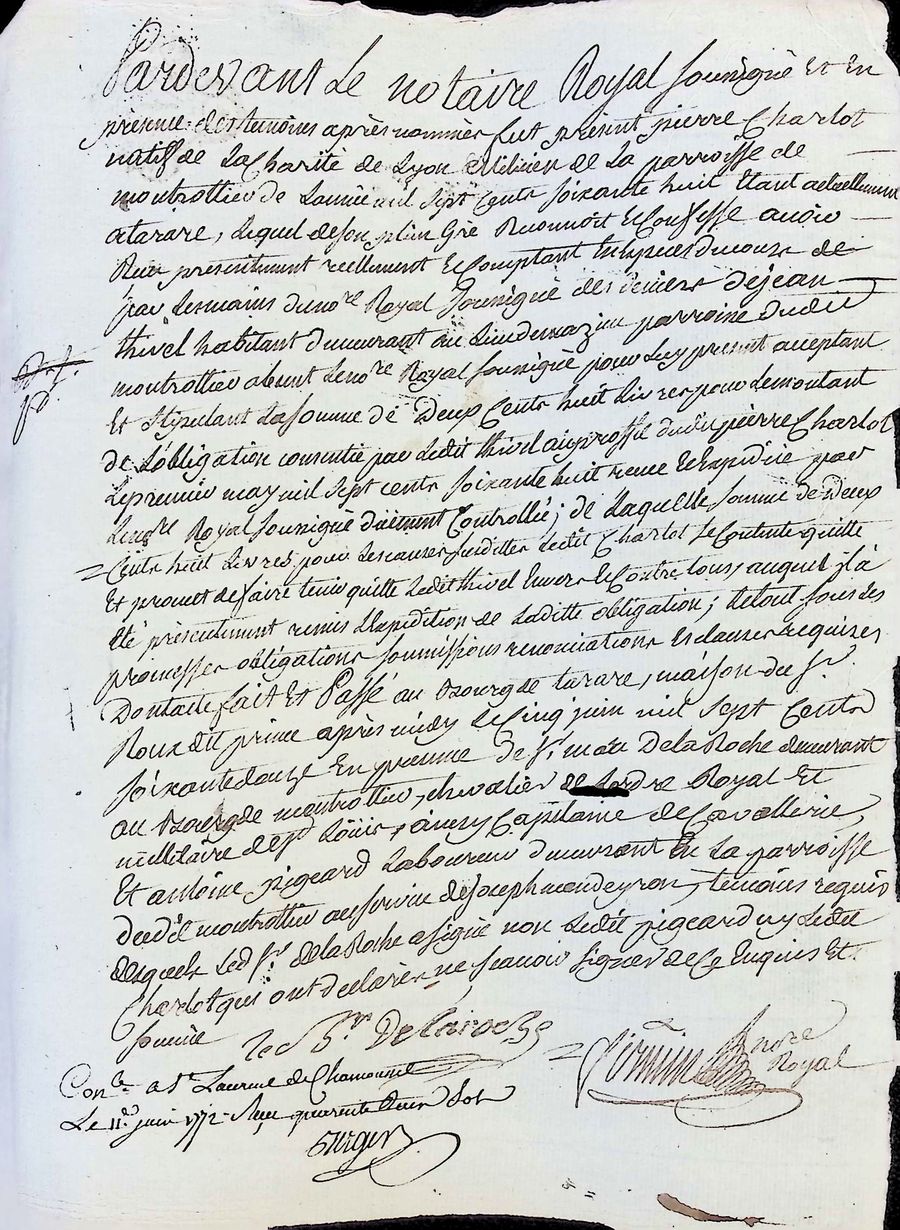 Pardevant Le notaire Royal soussigné Et En
présence des temoins après nommés fut présent pierre Charlot
natif de La Charité de Lyon Milicien de La parroisse de
montrottier de L'année mil sept Cents soixante huit Etant actuellement
a tarare, Lequel de son plein Gré Reconnoit Et Confesse avoir
Reçu presentement reellement Et Comptant En Espèces du cours de
par Les mains du nore Royal soussigné des deniers de jean
thivel habitant demeurant au Lieu de parroisse dudit
montrottier absent Le nore Royal soussigné pour Luy present acceptant
Et stipulant La somme de Deux Cents huit Livres pour Le montant
de L'obligation consentie par Ledit thivel au proffit dudit pierre Charlot
Le premier may mil sept cents soixante huit receue Et Expediée par
Le nore Royal soussigné düement Controllée; de Laquelle somme de Deux
Cents huit Livres pour Les causes susdittes Ledit Charlot se Contente quitte
Et promet de faire tenir quitte Ledit thivel Envers Et Contre tous, auquel il à
Eté présentement remis L'Expedition de Laditte obligation; Le tout sous Les
promesses obligations soumissions renonciations Et clauses requises
Dont acte fait Et Passé au Bourg de tarare, maison du Sr
Roux dit prince après midy Le Cinq juin mil sept Cents
soixante douze En presence de Sr De La Roche demeurant
au Bourg de montrottier, chevalier de Lordre Royal Et
millitaire de st Loüis, ancien Capitaine de Cavallerie,
Et antoine pigeard Laboureur demeurant En La parroisse
dudit montrottier au service de joseph, temoins requis
desquels Led sr de La Roche a signé non Ledit pigeard ny Ledit
Charlot qui ont declarés ne scavoir signer de Ce Enquis Et
sommés
Le Ser De Laroche
nore
Royal
Conlé a St Laurent de Chamousset
Le 11e juin 1772 Reçu quarente sols